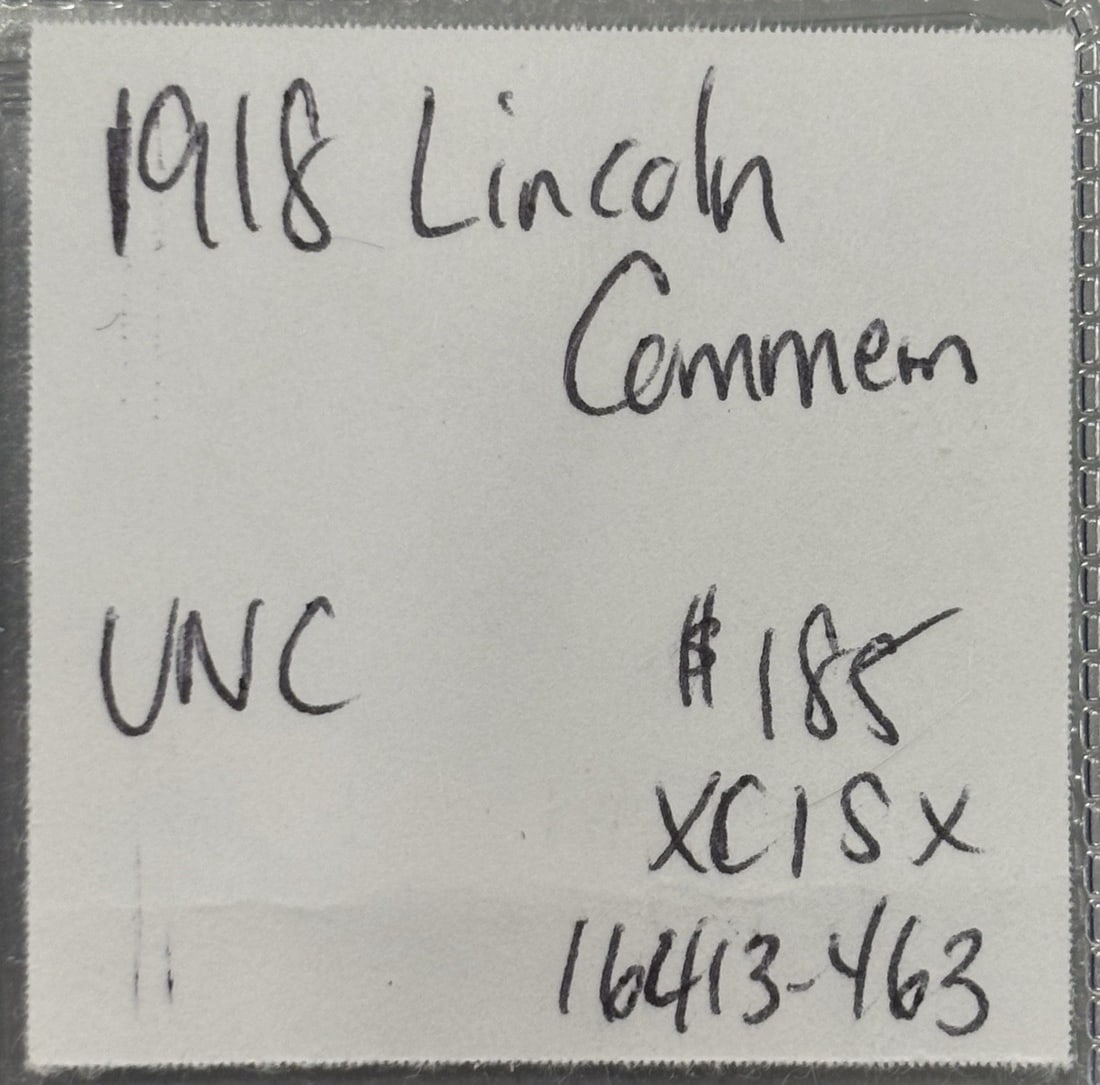 1918 Lincoln
Commem
UNC
$185
XCISX
16413-463